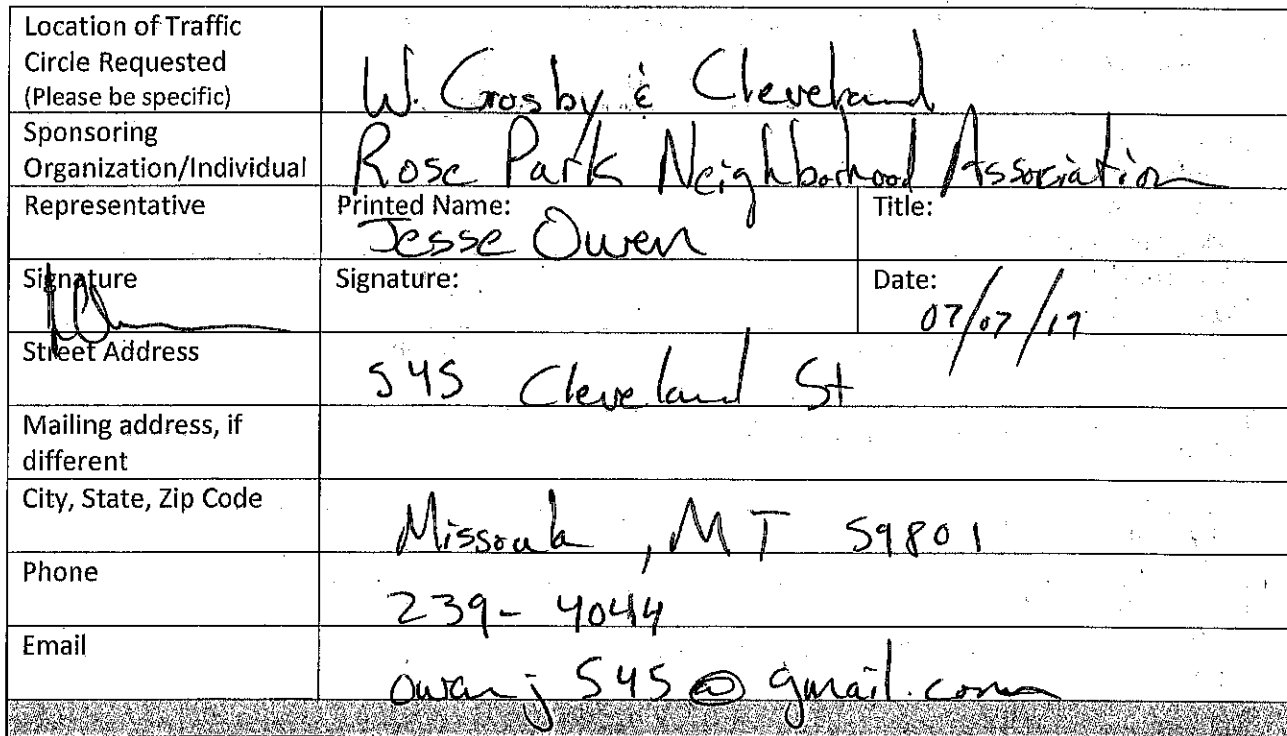 Location of Traffic
Circle Requested
(Please be specific)
W. Crosby & Cleveland
Sponsoring
Organization/Individual
Rose Park Neighborhood Association
Representative
Printed Name:
Jesse Owen
Title:
Signature
Signature:
Date:
07/07/19
Street Address
545 Cleveland St
Mailing address, if
different
City, State, Zip Code
Missoula, MT 59801
Phone
239-4044
Email
owenj545@gmail.com